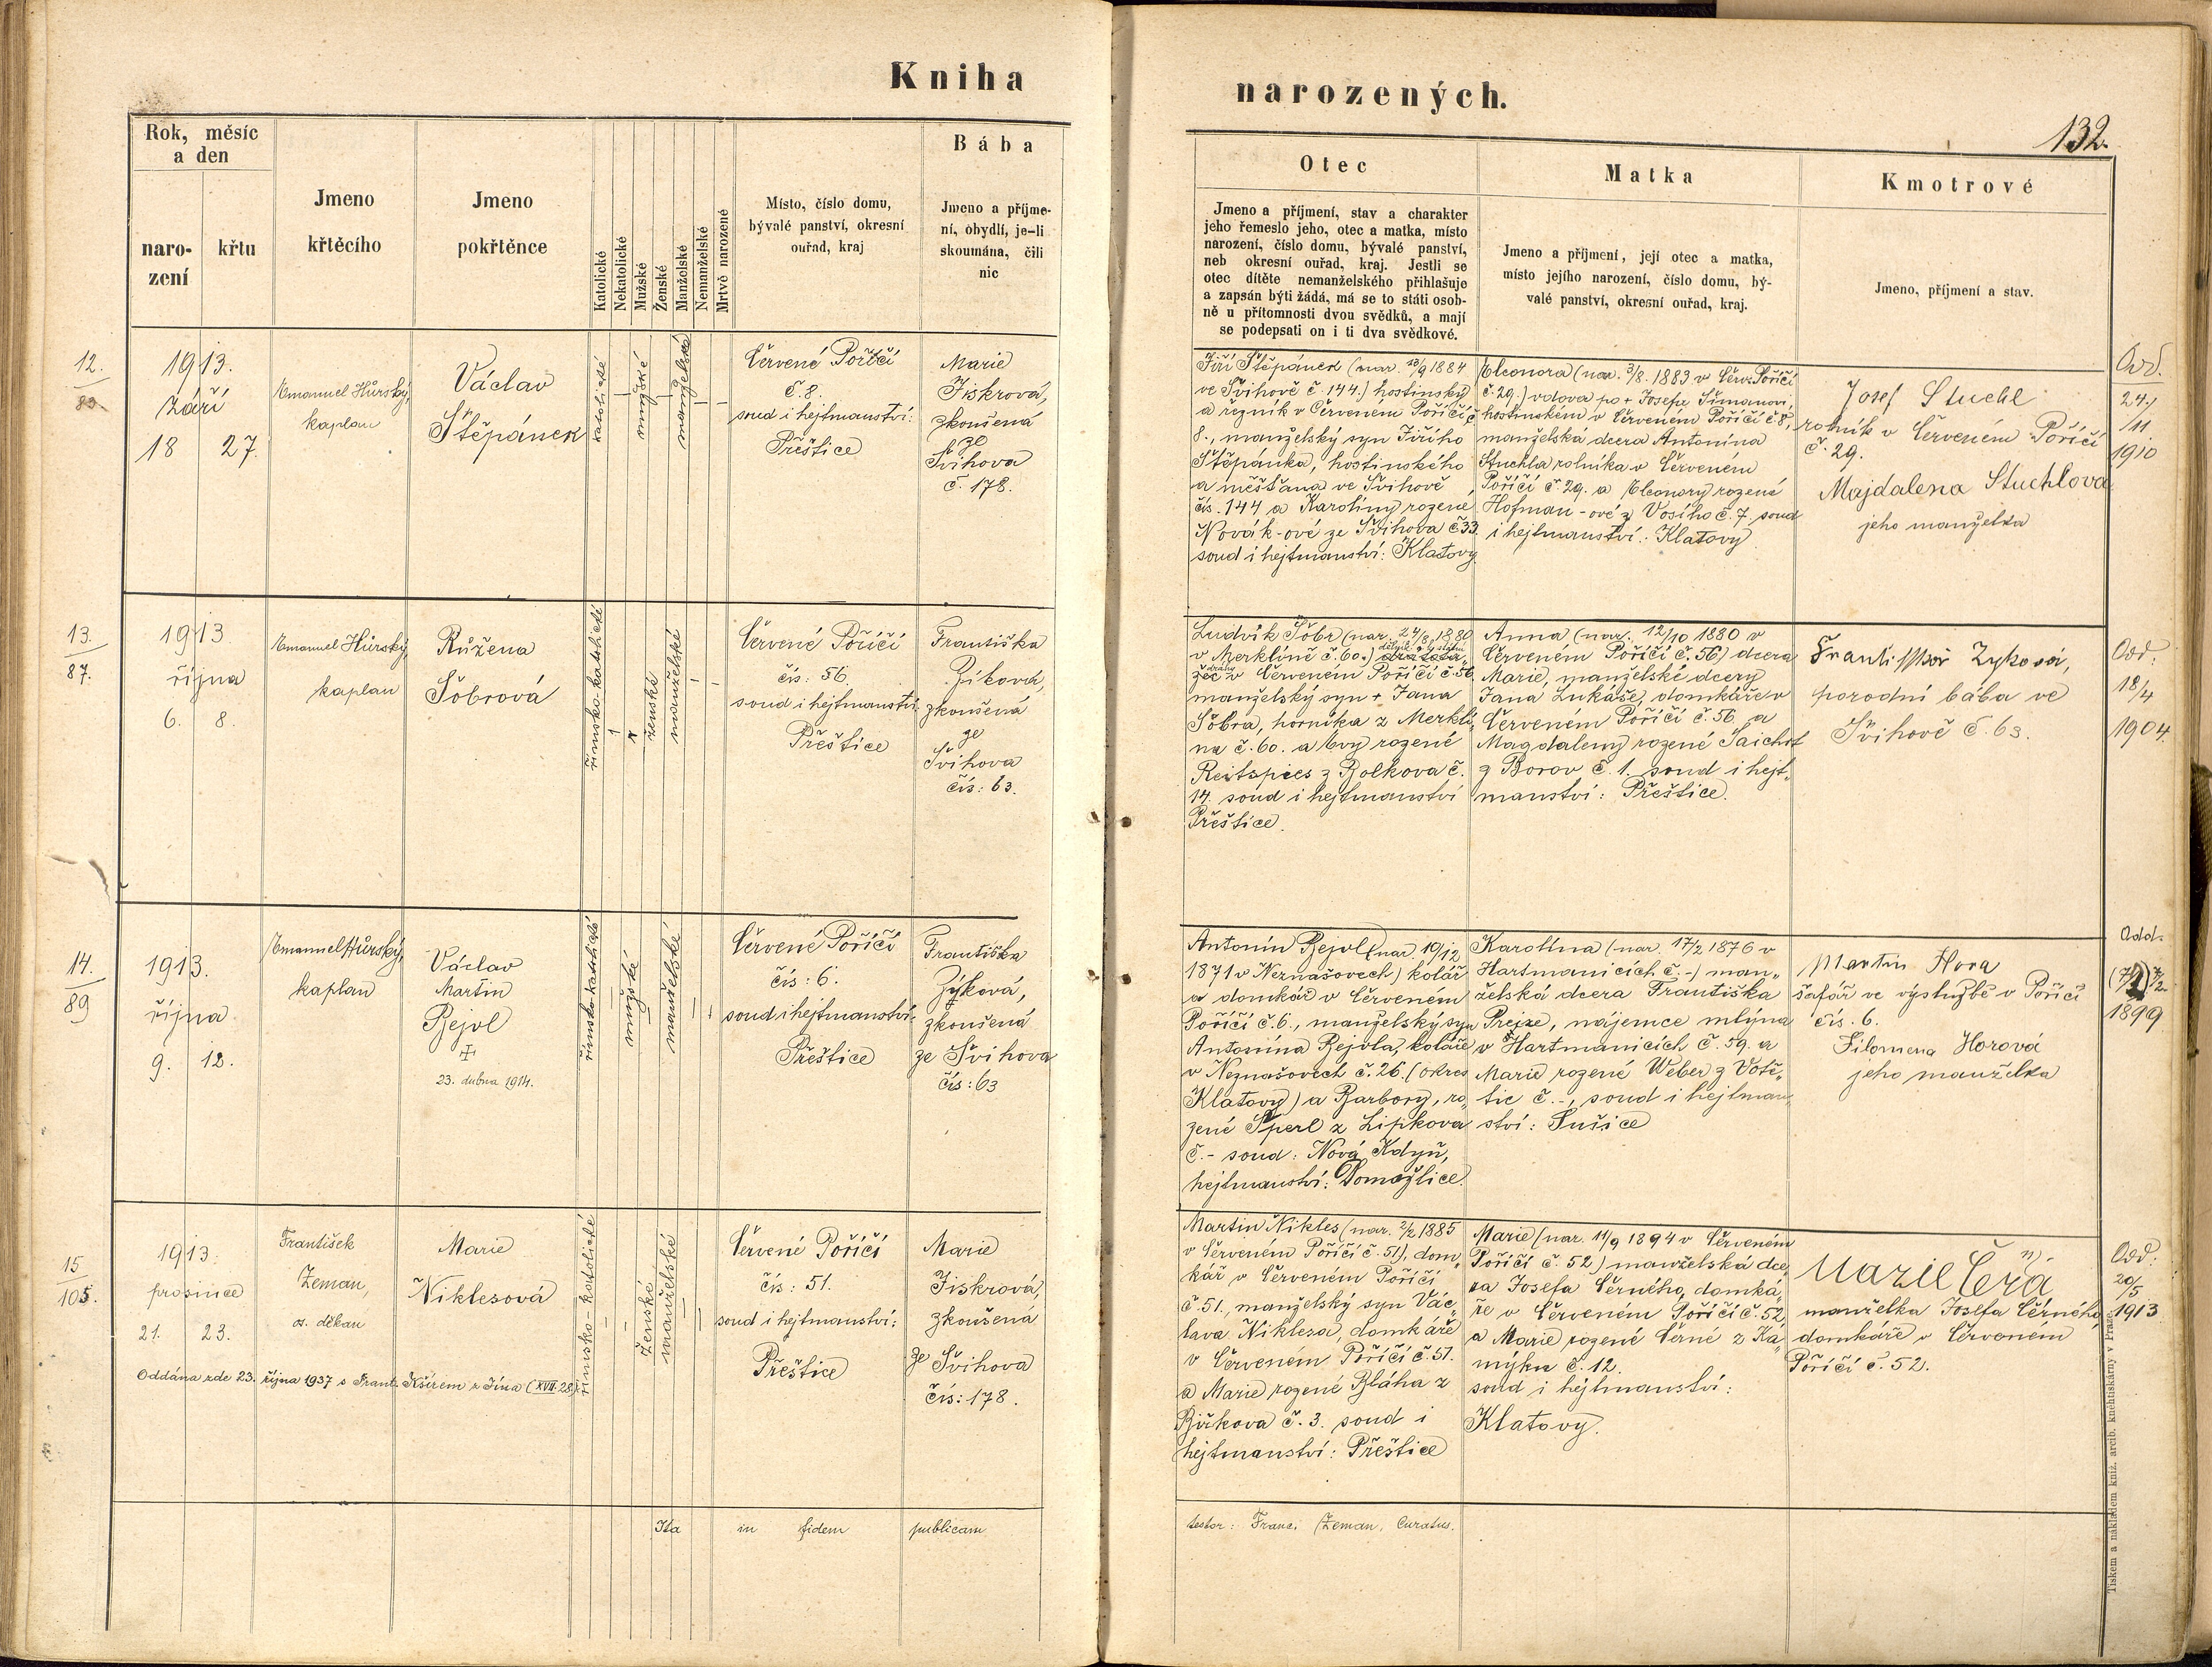 Kniha narozených.
132.
Rok, měsíc
a den
naro-
zení
křtu
Jmeno
křtěcího
Jmeno
pokřtěnce
Katolické
Nekatolické
Mužské
Ženské
Manželské
Nemanželské
Mrtvě narozené
Místo, číslo domu,
bývalé panství, okresní
ouřad, kraj
Bába
Jmeno a příjme-
ní, obydlí, je-li
skoumána, čili
nic
Otec
Jmeno a příjmení, stav a charakter
jeho řemeslo jeho, otec a matka, místo
narození, číslo domu, bývalé panství,
neb okresní ouřad, kraj. Jestli se
otec dítěte nemanželského přihlašuje
a zapsán býti žádá, má se to státi osob-
ně u přítomnosti dvou svědků, a mají
se podepsati on i ti dva svědkové.
Matka
Jmeno a příjmení, její otec a matka,
místo jejího narození, číslo domu, bý-
valé panství, okresní ouřad, kraj.
Kmotrové
Jmeno, příjmení a stav.
12.
83.
1913.
září
18 27.
Emanuel Hůrský,
kaplan
Václav
Štěpánek
katolické
mužské
manželské
Červené Poříčí
č. 8.
soud i hejtmanství:
Přeštice
Marie
Jiskrová,
zkoušená
ze
Švihova
č. 178.
Jiří Štěpánek (nar. 13/9 1884
ve Švihově č. 144.) hostinský
a řezník v Červeném Poříčí č.
8., manželský syn Jiřího
Štěpánka, hostinského
a měšťana ve Švihově
čís. 144 a Karolíny rozené
Novák-ové ze Švihova č. 33
soud i hejtmanství: Klatovy.
Eleonora (nar. 3/8. 1883 v Červ. Poříčí
č. 29.) vdova po + Josefu Šimanovi,
hostinském v Červeném Poříčí č. 8,
manželská dcera Antonína
Stuchla rolníka v Červeném
Poříčí č. 29. a Eleonory rozené
Hofman-ové z Vosího č. 7 soud
i hejtmanství: Klatovy.
Josef Stuchl
rolník v Červeném Poříčí
č. 29.
Majdalena Stuchlova
jeho manželka
Odd.
24./
/11
1910
13.
87.
1913
října
6. 8.
Emanuel Hůrský
kaplan
Růžena
Šobrová
římsko-katolické
ženské
manželské
Červené Poříčí
čís: 56.
soud i hejtmanství
Přeštice
Františka
Zíková,
zkoušená
ze
Švihova
čís: 63.
Ludvík Šobr (nar. 24/8 1880
v Merklíně č. 60.)
žec v Červeném Poříčí č. 56
manželský syn + Jana
Šobra, horníka z Merklí-
na č. 60. a Evy rozené
Reitspies z Bolkova č.
14. soud i hejtmanství
Přeštice.
Anna (nar. 12/10 1880 v
Červeném Poříčí č. 56) dcera
Marie, manželské dcery
Jana Lukáše, domkáře v
Červeném Poříčí č. 56. a
Magdaleny rozené Šaichrt
z Borov č. 1. soud i hejt-
manství: Přeštice.
Františka Zyková,
porodní bába ve
Švihově č. 63.
Odd:
18/4
1904.
14.
89
1913.
října
9. 12.
Emanuel Hůrský,
kaplan
Václav
Martin
Bejvl
23. dubna 1914.
římsko-katolické
mužské
manželské
Červené Poříčí
čís: 6.
soud i hejtmanství:
Přeštice
Františka
Zyková,
zkoušená
ze Švihova
čís: 63
Antonín Bejvl (nar. 19/12
1871 v Neznašovech) kolář
a domkář v Červeném
Poříčí č. 6., manželský syn
Antonína Bejvla, koláře
v Neznašovech č. 26. (okres
Klatovy) a Barbory, ro-
zené Šperl z Lipkova
č. - soud: Nová Kdyň,
hejtmanství: Domažlice.
Karolína (nar. 17/2 1876 v
Hartmanicích č. -) man-
želská dcera Františka
Prejze, nájemce mlýna
v Hartmanicích č. 59. a
Marie rozené Weber z Votě-
tic č. -, soud i hejtman-
ství: Sušice
Martin Hora
šafář ve výslužbě v Poříčí
čís. 6.
Filomena Horová
jeho manželka
Odd.
1899
15
105.
1913.
prosince
21. 23.
František
Zeman,
os. děkan
Marie
Niklesová
Oddána zde 23. října 1937 s Frant. Kšírem z Jína (XVII-28).
římsko-katolické
ženské
manželské
Červené Poříčí
čís: 51.
soud i hejtmanství:
Přeštice
Marie
Jiskrová,
zkoušená
ze Švihova
čís: 178.
Martin Nikles (nar. 2/2 1885
v Červeném Poříčí č. 51), dom-
kář v Červeném Poříčí
č. 51., manželský syn Vác-
lava Niklesa, domkáře
v Červeném Poříčí č. 51.
a Marie rozené Bláha z
Bižkova č. 3. soud i
hejtmanství: Přeštice
Marie (nar. 11/9 1894 v Červeném
Poříčí č. 52) manželská dce-
ra Josefa Černého, domká-
ře v Červeném Poříčí č. 52,
a Marie rozené Černé z Ka-
mýku č. 12.
soud i hejtmanství:
Klatovy.
Marie Černá
manželka Josefa Černého,
domkáře v Červeném
Poříčí č. 52.
Odd:
20/5
1913
Ita in fidem publicam
testor: Franc. Zeman, Curatus.
Tiskem a nákladem kníž. arcib. knihtiskárny v Praze.